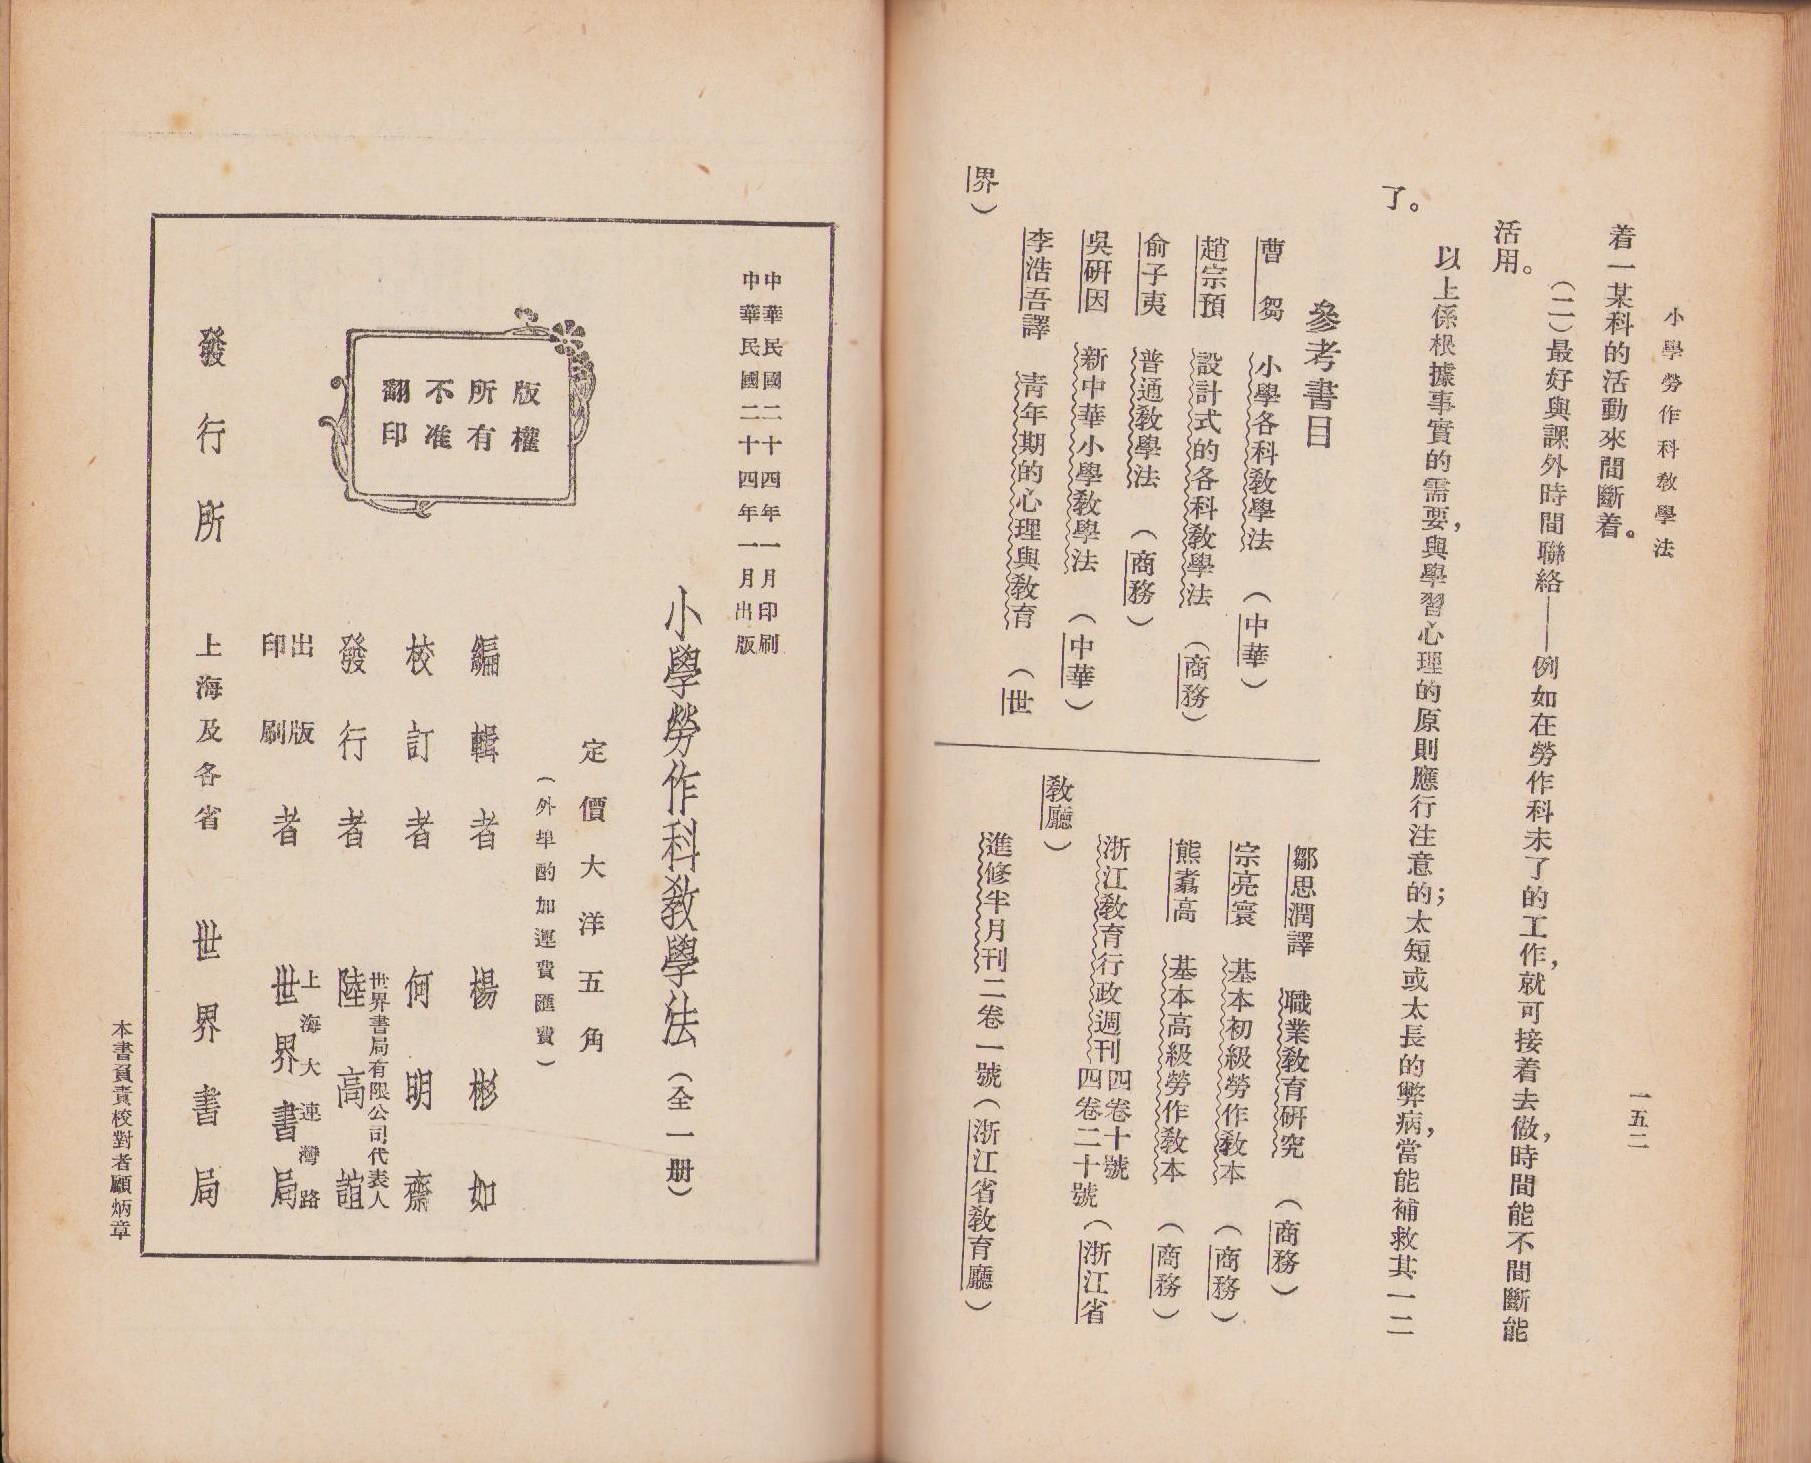 小學勞作科教學法
一五二
着一某科的活動來間斷着。
(二)最好與課外時間聯絡——例如在勞作科未了的工作，就可接着去做，時間能不間斷能
活用。
以上係根據事實的需要，與學習心理的原則應行注意的；太短或太長的弊病，當能補救其一二
了。
參考書目
曹芻 小學各科教學法 (中華)
趙宗預 設計式的各科教學法 (商務)
俞子夷 普通教學法 (商務)
吳研因 新中華小學教學法 (中華)
李浩吾譯 青年期的心理與教育 (世
界)
鄒思潤譯 職業教育研究 (商務)
宗亮寰 基本初級勞作教本 (商務)
熊翥高 基本高級勞作教本 (商務)
浙江教育行政週刊四卷十號
四卷二十號 (浙江省
教廳)
進修半月刊二卷一號 (浙江省教育廳)
中華民國二十四年一月印刷
中華民國二十四年一月出版
版權
所有
不准
翻印
小學勞作科教學法 (全一册)
定價大洋五角
(外埠酌加運費匯費)
編輯者 楊彬如
校訂者 何明齋
發行者 世界書局有限公司代表人
陸高誼
出版
印刷者 上海大連灣路
世界書局
發行所 上海及各省 世界書局
本書負責校對者顧炳章